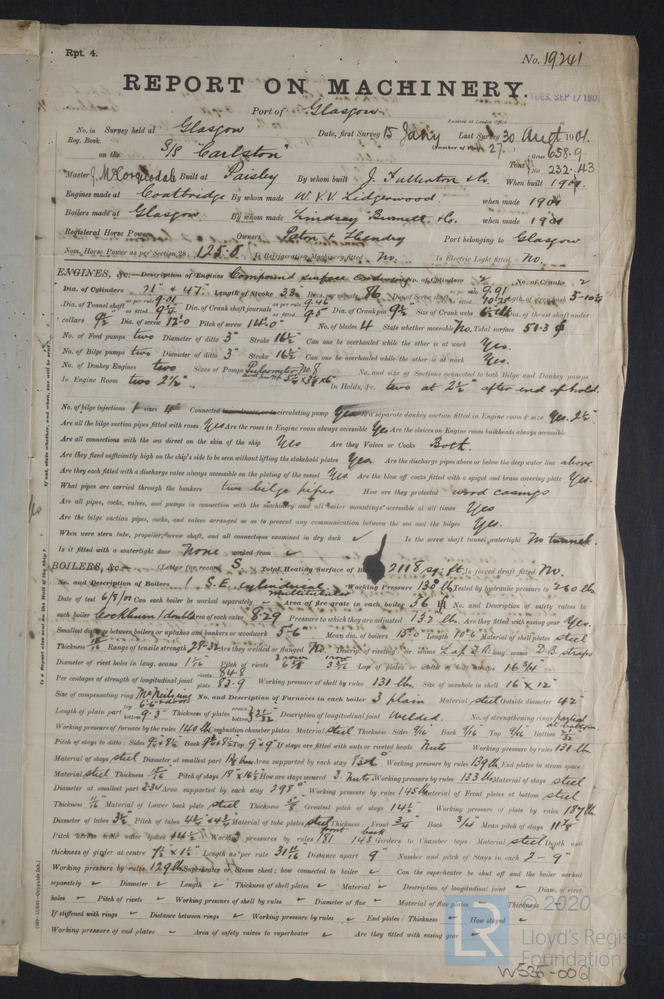 Rpt. 4.
No. 19241
REPORT ON MACHINERY.
TUES. SEP 17 1901
Port of Glasgow
Received at London Office
No. in Survey held at Glasgow Date, first Survey 15 Jany Last Survey 30 Augt 1901
Reg. Book. (Number of Visits 27.)
on the S/S "Carlston" Tons Gross 658.9 Net 232.43
Master Built at Paisley By whom built J. Fullerton & Co. When built 1901
Engines made at Coatbridge By whom made W. V. V. Lidgerwood when made 1901
Boilers made at Glasgow By whom made Lindsay Burnett & Co. when made 1901
Registered Horse Power Owners Paton & Hendry Port belonging to Glasgow
Nom. Horse Power as per Section 28 125.0 Is Refrigerating Machinery fitted No. Is Electric Light fitted No.
ENGINES, &c.—Description of Engines Compound surface condensing No. of Cylinders 2 No. of Cranks 2
Dia. of Cylinders 21" & 47" Length of Stroke 33" Revs. per minute 86 Dia. of Screw shaft as per rule 9.91
Dia. of Tunnel shaft as per rule 9.01 Dia. of Crank shaft journals as per rule 9.46 as fitted 9.5 Dia. of Crank pin 9½ Size of Crank webs
collars 9½ Dia. of screw 12.0 Pitch of screw No. of blades 4 State whether moveable No. Total surface 50.3
No. of Feed pumps two Diameter of ditto 3" Stroke 16½ Can one be overhauled while the other is at work Yes.
No. of Bilge pumps two Diameter of ditto 3" Stroke 16½ Can one be overhauled while the other is at work Yes.
No. of Donkey Engines two Sizes of Pumps Pulsometer No 8 No. and size of Suctions connected to both Bilge and Donkey pumps
In Engine Room two 2½" In Holds, &c. two at 2½" after end of hold.
No. of bilge injections 1 sizes 4" Connected to circulating pump Yes Is a separate donkey suction fitted in Engine room & size Yes. 2½"
Are all the bilge suction pipes fitted with roses Yes Are the roses in Engine room always accessible Yes Are the sluices on Engine room bulkheads always accessible
Are all connections with the sea direct on the skin of the ship Yes Are they Valves or Cocks Both.
Are they fixed sufficiently high on the ship's side to be seen without lifting the stokehold plates Yes. Are the discharge pipes above or below the deep water line above
Are they each fitted with a discharge valve always accessible on the plating of the vessel Yes. Are the blow off cocks fitted with a spigot and brass covering plate Yes.
What pipes are carried through the bunkers two bilge pipes How are they protected wood casings
Are all pipes, cocks, valves, and pumps in connection with the machinery and all boiler mountings accessible at all times Yes
Are the bilge suction pipes, cocks, and valves arranged so as to prevent any communication between the sea and the bilges Yes.
When were stern tube, propeller, screw shaft, and all connections examined in dry dock ✓ Is the screw shaft tunnel watertight No tunnel.
Is it fitted with a watertight door None worked from ✓
BOILERS, &c.— (Letter for record S.) Total Heating Surface of Boilers 2118 sq. ft. Is forced draft fitted No.
No. and Description of Boilers 1 S.E. cylindrical multitubular Working Pressure 130 lb Tested by hydraulic pressure to 260 lb
Date of test 6/8/01 Can each boiler be worked separately - Area of fire grate in each boiler 56 No. and Description of safety valves to
each boiler Cockburn/double Area of each valve 8.29 Pressure to which they are adjusted 132 lbs Are they fitted with easing gear Yes.
Smallest distance between boilers or uptakes and bunkers or woodwork 5"-6 Mean dia. of boilers 15.0 Length 10.6 Material of shell plates steel
Thickness Range of tensile strength 28-32 Are they welded or flanged No. Descrip. of riveting: cir. seams Lap D.R. long. seams D.B. straps
Diameter of rivet holes in long. seams 1 1/16 Pitch of rivets Lap of plates or width of butt straps 16 3/4
Per centages of strength of longitudinal joint rivets 84.8 plate 83.9 Working pressure of shell by rules 131 lb. Size of manhole in shell 16" × 12"
Size of compensating ring McNeils ring No. and Description of Furnaces in each boiler 3 plain Material steel Outside diameter 42"
Length of plain part bottom 9.3" Thickness of plates Description of longitudinal joint Welded. No. of strengthening rings
Working pressure of furnace by the rules 140 lb Combustion chamber plates: Material steel Thickness: Sides 9/16 Back 9/16 Top 9/16 Bottom
Pitch of stays to ditto: Sides 9"×8½ Back Top 9"×9" If stays are fitted with nuts or riveted heads Nuts Working pressure by rules 130 lb
Material of stays steel Diameter at smallest part Area supported by each stay Working pressure by rules 139 lb End plates in steam space:
Material steel Thickness Pitch of stays 18"×16½ How are stays secured Nuts Working pressure by rules 133 lb Material of stays steel
Diameter at smallest part Area supported by each stay 298 Working pressure by rules 145 lb Material of Front plates at bottom steel
Thickness Material of Lower back plate steel Thickness Greatest pitch of stays 14½ Working pressure of plate by rules 187 lb
Diameter of tubes 3½ Pitch of tubes 4¾×4¾ Material of tube plates steel Thickness: Front 3/4 Back 3/4 Mean pitch of stays
Pitch across wide water spaces 14½ Working pressures by rules front 181 back 143 Girders to Chamber tops: Material steel Depth and
thickness of girder at centre 7½×1½ Length as per rule Distance apart 9" Number and pitch of Stays in each 2-9"
Working pressure by rules 129 lb Superheater or Steam chest; how connected to boiler ✓ Can the superheater be shut off and the boiler worked
separately ✓ Diameter ✓ Length ✓ Thickness of shell plates ✓ Material ✓ Description of longitudinal joint ✓ Diam. of rivet
holes ✓ Pitch of rivets ✓ Working pressure of shell by rules ✓ Diameter of flue ✓ Material of flue plates ✓ Thickness
If stiffened with rings ✓ Distance between rings ✓ Working pressure by rules ✓ End plates: Thickness ✓ How stayed ✓
Working pressure of end plates ✓ Area of safety valves to superheater ✓ Are they fitted with easing gear ✓
© 2020
LR
Lloyd's Register
Foundation
W535-0061